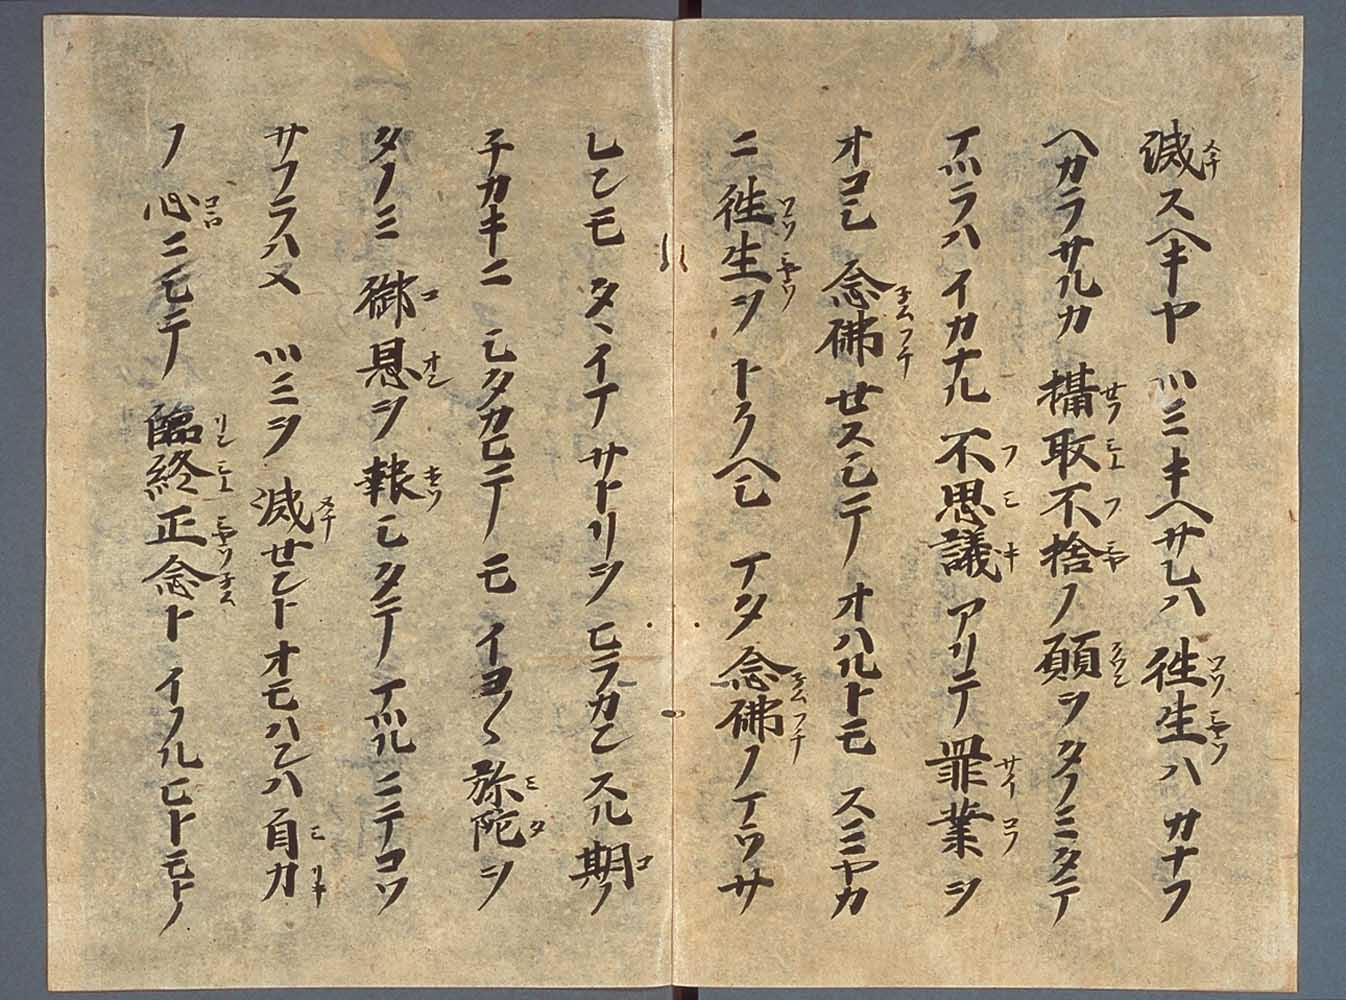 滅スヘキヤツミキヘサレハ往生ハカナフ
ヘカラサルカ攝取不捨ノ願ヲタノミタテ
マツラハイカナル不思議アリテ罪業ヲ
オコシ念佛セスシテオハルトモスミヤカ
ニ往生ヲトクヘシマタ念佛ノマフサ
レンモタヽイマサトリヲヒラカンスル期ノ
チカキニシタカヒテモイヨ〱弥陀ヲ
タノミ御恩ヲ報シタテマツルニテコソ
サフラハメツミヲ滅セントオモハンハ自力
ノ心ニシテ臨終正念トイノルヒトモトノ